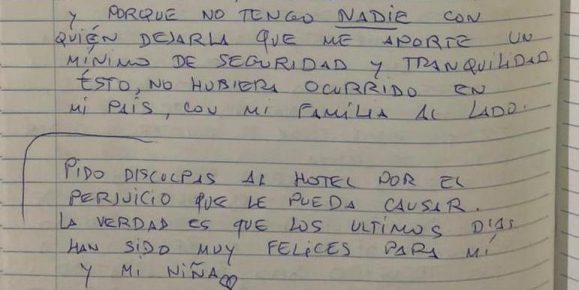 Y PORQUE NO TENGO NADIE CON
QUIÉN DEJARLA QUE ME APORTE UN
MÍNIMO DE SEGURIDAD Y TRANQUILIDAD
ÉSTO, NO HUBIERA OCURRIDO EN
MI PAÍS, CON MI FAMILIA AL LADO.
PIDO DISCULPAS AL HOTEL POR EL
PERJUICIO QUE LE PUEDA CAUSAR.
LA VERDAD ES QUE LOS ULTIMOS DIAS
HAN SIDO MUY FELICES PARA MÍ
Y MI NIÑA